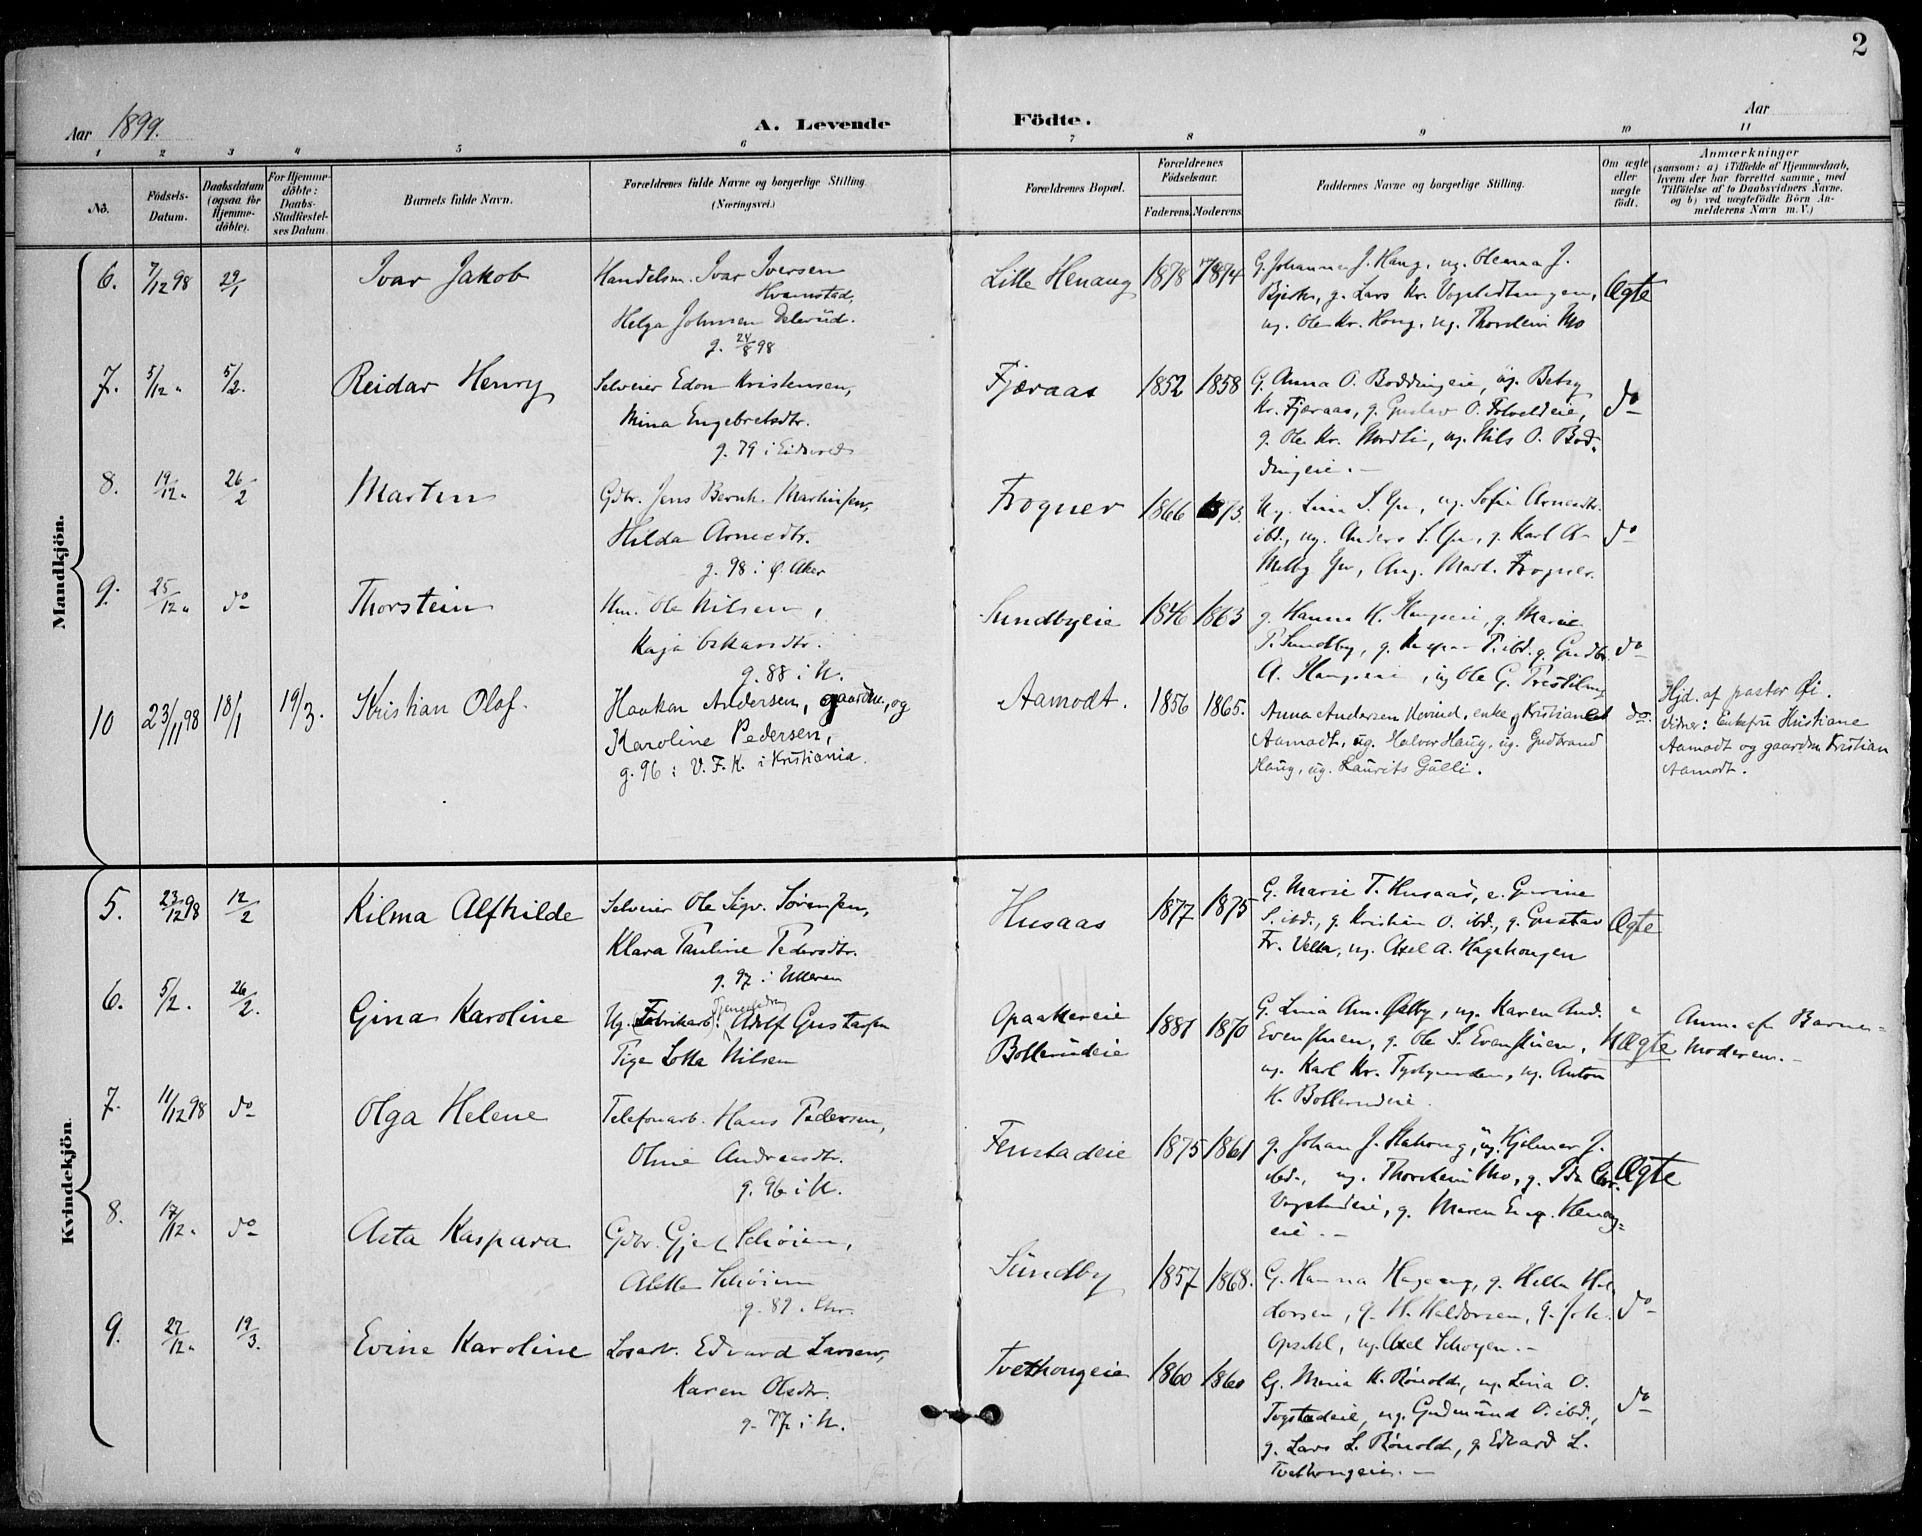 2
Aar 1899.
A. Levende Födte.
Aar
1 2 3 4 5 6 7 8 9 10 11
No.
Födsels-Datum.
Daabsdatum (ogsaa for Hjemme-döbte).
For Hjemme-döbte: Daabs-Stadfæstel-ses Datum.
Barnets fulde Navn.
Forældrenes fulde Navne og borgerlige Stilling.
(Næringsvei.)
Forældrenes Bopæl.
Forældrenes Födselsaar.
Faderens. Moderens.
Faddernes Navne og borgerlige Stilling.
Om ægte eller uægte födt.
Anmærkninger
(saasom: a) i Tilfælde af Hjemmedaab,
hvem der har forrettet samme, med
Tilföielse af to Daabsvidners Navne.
og b) ved uægtefödte Börn An-
melderens Navn m. V.)
Mandkjön.
6. 7/12 98 29/1 Ivar Jakob Handelsm. Ivar Iversen Lille Henaug 1878 1874 Ægte
Hvamstad,
Helga Johnsen
g. 24/8 98
ug. Ole Kr. Haug, ug. Thorstein Mo
7. 5/12 " 5/2. Reidar Henry Selveier Edon Kristensen, Fjæraas 1852 1858 G. Anna O. Boddingeie, ug. Betsy do
Mina Engebretsdtr. Kr. Fjæraas, g. Gustav O.
g. 79 i Eidsvold g. Ole Kr. Nordli, ug. Nils O. Bod-
dingeie. -
8. 19/12 " 26/2 Marten Gdbr. Jens Bernh. Martinsen, Frogner 1866 1873. ug. Sofie Arnesdtr. do
Hilda Arnesdtr. ibd., ug. Anders S. g. Karl A
g. 98 i Ø. Aker Aug. Mart. Frogner.
9. 25/12 " do Thorstein Hm. Ole Nilsen, Sundbyeie 1846 1863 g. Hanna K. g. Marie do
Kaja Oskarsdtr. P. Sundby, g.
g. 88 i N. A. ug Ole G.
10 23/11 98 18/1 19/3. Kristian Olaf. Haakon Andersen, gaardm., og Aamodt. 1856 1865. Anna Andersen enke, g Kristian do. Hjd. af pastor Øi.
Karoline Pedersen, Aamodt, ug. Halvor Haug, ug. Gudbrand Vidner: Enkefru Kristiane
g. 96 i V. F. K. i Kristiania. Haug, ug. Laurits Gulli. Aamodt og gaardm Kristian
Aamodt.
Kvindekjön.
5. 23/12 98 12/2 Kilma Alfhilde Selveier Ole Sigv. Sørensen, Husaas 1877 1875 G. Marie T. Husaas, e. Gurine Ægte
Klara Pauline Pedersdtr. S. ibd., g. Kristian O. ibd., g. Gustav
g. 97 i Ulleren Fr. ug. Axel A. Hagahougen
6. 5/2. 26/2. Gina Karoline Ug. Fabrikarb. Adolf Gustafsen Opaakereie 1881 1870 G. Lina Am. Østby, ug. Karen And. " Anm. af Barnes-
Pige Lotta Nilsen Bollerudeie Evenstuen, g. Ole S. Evenstuen, Uægte Moderen. -
ug. Karl Kr. ug. Anton
K. Bollerudeie.
7. 11/12 98 do Olga Helene Telefonarb. Hans Pedersen, Fenstadeie 1875 1861 g. Johan J. ug. Hjelmer J. Ægte
Oline Andreasdtr. ibd., ug. Thorstein Mo, g. Ida
g. 96 i N. g. Maren
eie. -
8. 17/12 " do Asta Kaspara Gdbr. Gjert Schøien, Sundby 1857 1868. G. Hanna g. do
Schøien dorsen, g. H. Haldorsen, g. Joh.
g. 89 i Chr. Opsahl, ug. Axel Schøyen. -
9. 27/12 " 19/3. Evine Karoline Losarb. Edvard Larsen, Tvethougeie 1860 1860 G. Maria K. Rønold, ug. Lina O. do
Karen Olsdtr. ug. Gudmund O. ibd.,
g. 77 i N. g. Lars L. Rønold, g. Edvard L.
Tvethougeie. -